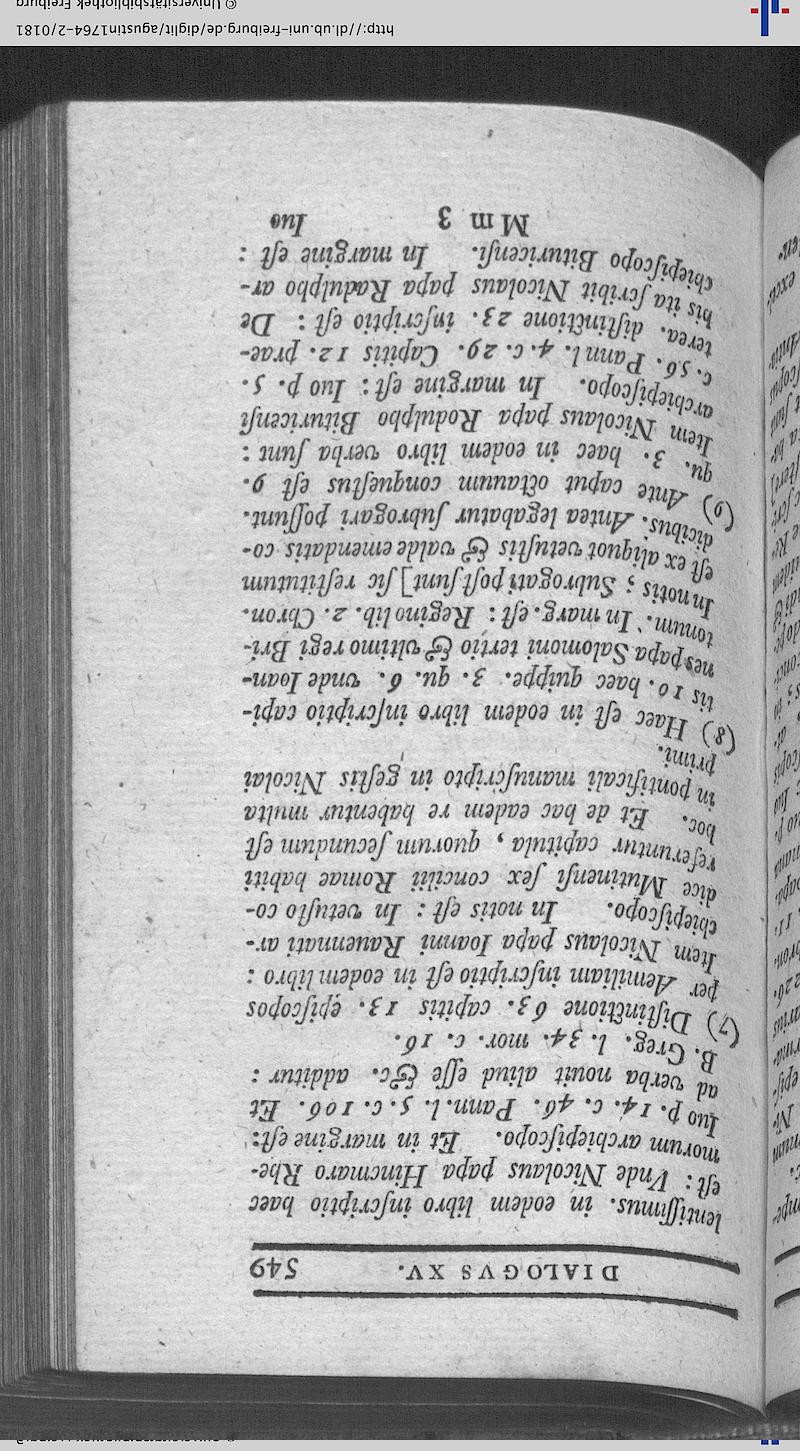 DIALOGVS XV. 549
lentiſſimus. in eodem libro inſcriptio haec
eſt: Vnde Nicolaus papa Hincmaro Rhe-
morum archiepiſcopo. Et in margine eſt:
Iuo p. 14. c. 46. Pann. l. 5. c. 106. Et
ad verba nouit aliud eſſe &c. additur:
B. Greg. l. 34. mor. c. 16.
(7) Diſtinctione 63. capitis 13. epiſcopos
per Aemiliam inſcriptio eſt in eodem libro:
Item Nicolaus papa Ioanni Rauennati ar-
chiepiſcopo. In notis eſt: In vetuſto co-
dice Mutinenſi ſex concilii Romae habiti
referuntur capitula, quorum ſecundum eſt
hoc. Et de hac eadem re habentur multa
in pontificali manuſcripto in geſtis Nicolai
primi.
(8) Haec eſt in eodem libro inſcriptio capi-
tis 10. haec quippe. 3. qu. 6. vnde Ioan-
nes papa Salomoni tertio & vltimo regi Bri-
tonum. In marg. eſt: Regino lib. 2. Chron.
In notis; Subrogati poſt ſunt] ſic reſtitutum
eſt ex aliquot vetuſtis & valde emendatis co-
dicibus. Antea legabatur ſubrogari poſſunt.
(9) Ante caput octauum conqueſtus eſt 9.
qu. 3. haec in eodem libro verba ſunt:
Item Nicolaus papa Rodulpho Bituricenſi
archiepiſcopo. In margine eſt: Iuo p. 5.
c. 56. Pann l. 4. c. 29. Capitis 12. prae-
terea. diſtinctione 23. inſcriptio eſt: De
his ita ſcribit Nicolaus papa Radulpho ar-
chiepiſcopo Bituricenſi. In margine eſt:
Mm 3 Iuo
http://dl.ub.uni-freiburg.de/diglit/augustin1764-2/0181
© Universitätsbibliothek Freiburg